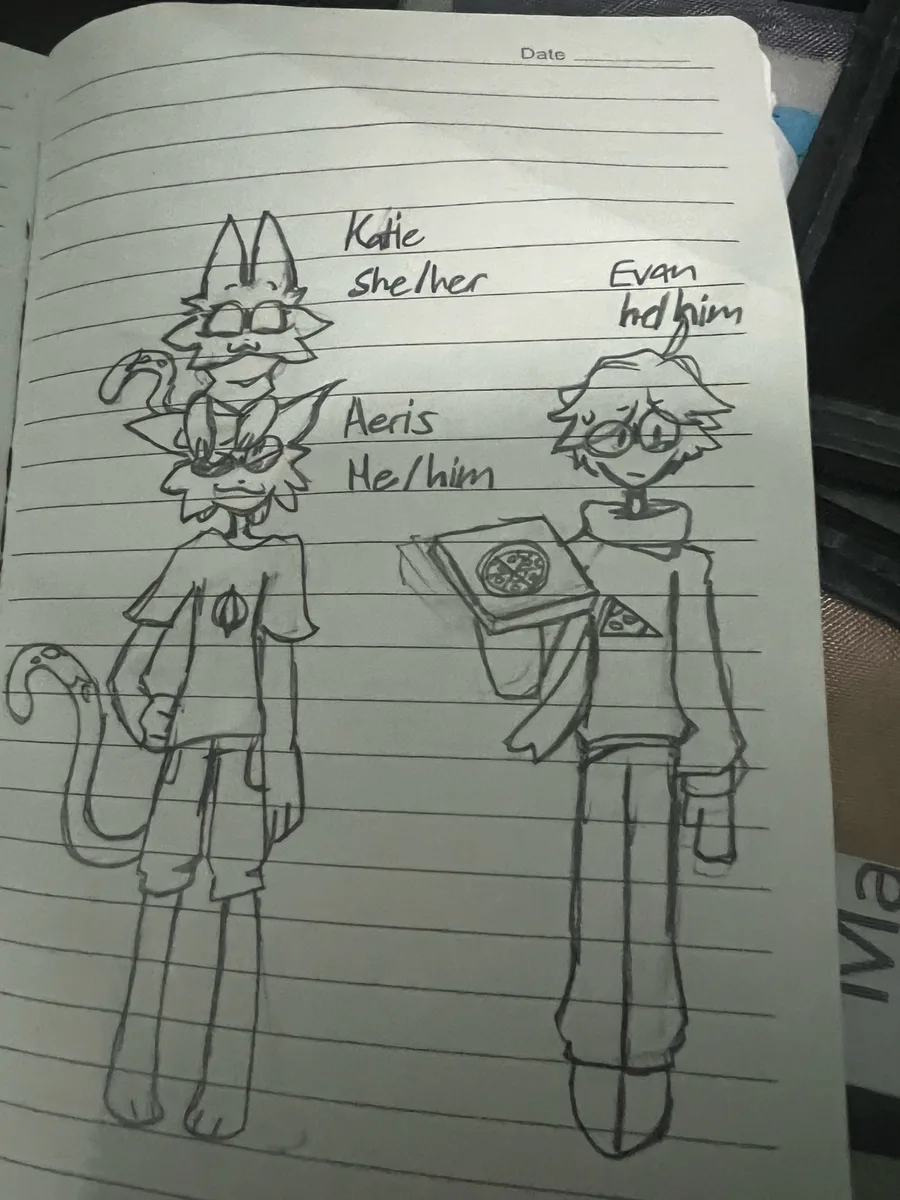 Date
Katie
she/her
Evan
he/him
Aeris
He/him
Ma